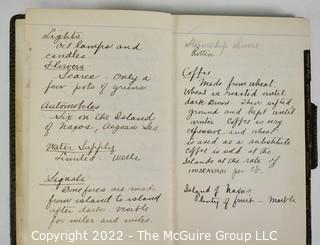 Lights
Oil lamps and
candles
Flowers
Scarce. Only a
few pots of greens.
Automobiles
Six on the Island
of Naxos, Aegean Sea.
Water Supply
Limited. Wells.
Signals
Bonfires are made
from island to island
after dark visible
for miles and miles.
Steamship
Rotten
Coffee
Made from wheat.
Wheat is roasted until
dark brown. Then sifted
ground and kept until
winter. Coffee is very
expensive and wheat
is used as a substitute
Coffee is sold at the
Islands at the rate of
per lb.
Island of Naxos
Plenty of fruit — Marble
Copyright 2022 - The McGuire Group, LLC